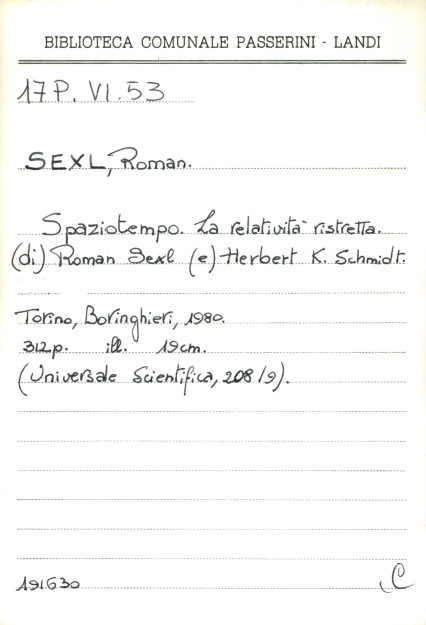 BIBLIOTECA COMUNALE PASSERINI - LANDI
17P. VI.53
SEXL, Roman.
Spaziotempo. La relatività ristretta.
(di) Roman Sexl (e) Herbert K. Schmidt.
Torino, Boringhieri, 1980.
312p. ill. 19cm.
(Universale Scientifica, 208/9).
191630
C